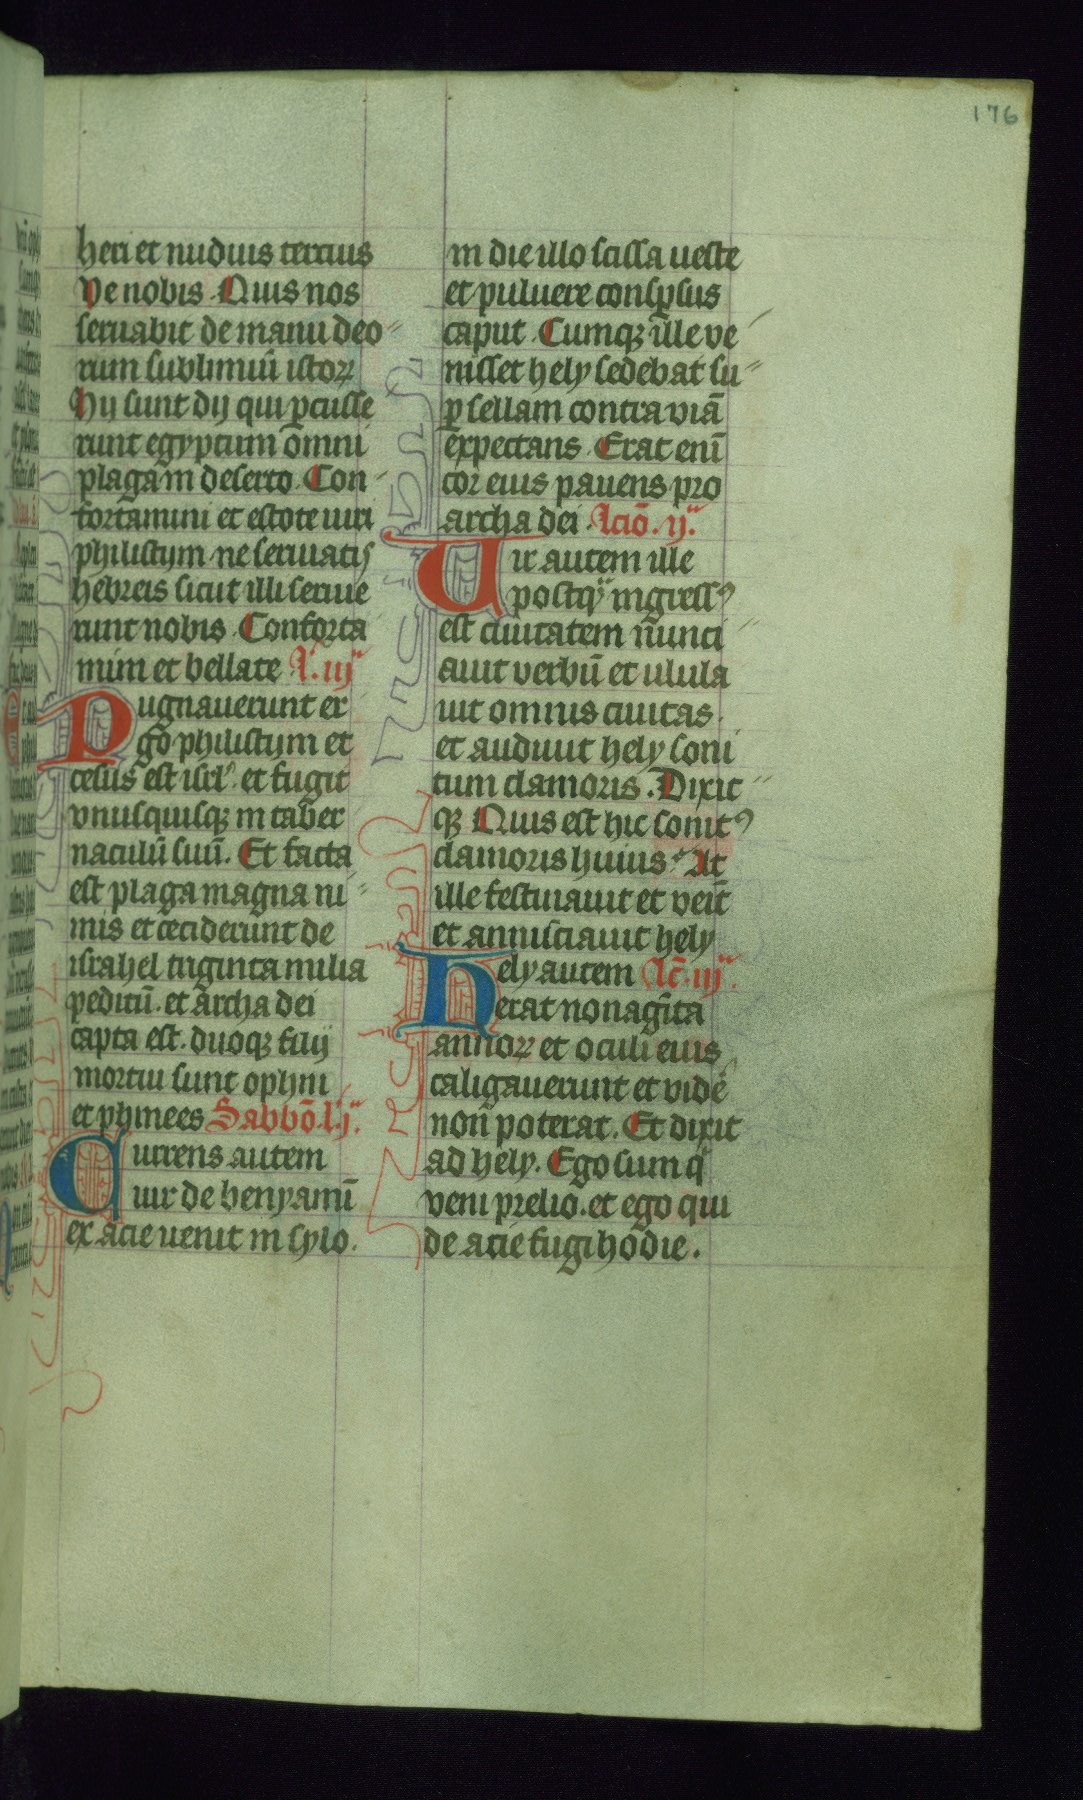 176
heri et nudius tercius
Ve nobis. Quis nos
seruabit de manu deo
rum sublimiū istoꝝ
Hij sunt dij qui ꝑcusse
runt egyptum omni
plaga in deserto. Con
fortamini et estote uiri
philistijm ne seruiatis
hebreis sicut illi seruie
runt nobis. Conforta
mini et bellate. L'. iij
Pugnauerunt er
go philistijm et
cesus est isrl'. et fugit
vnusquisqꝫ in taber
naculū suū. Et facta
est plaga magna ni
mis et ceciderunt de
israhel triginta milia
peditū. et archa dei
capta est. duoqꝫ filij
mortui sunt ophni
et phinees Sabbō. l'. j.
Currens autem
uir de benyamī
ex acie uenit in sylo.
in die illo scissa ueste
et puluere conspersus
caput. Cumqꝫ ille ve
nisset hely sedebat su
ꝑ sellam contra viā
expectans. Erat enī
cor eius pauens pro
archa dei. Lciō. ij.
Uir autem ille
postq̄ ingressꝰ
est ciuitatem nunci
auit verbū et ulula
uit omnis ciuitas.
et audiuit hely soni
tum clamoris. Dixit
qꝫ Quis est hic sonitꝰ
clamoris huius. At
ille festinauit et venit
et annūciauit hely
Hely autem Lc̄. iij.
erat nonagīta
annoꝝ et oculi eius
caligauerunt et vidē
non poterat. Et dixit
ad hely. Ego sum qi
veni prelio. et ego qui
de acie fugi hodie.